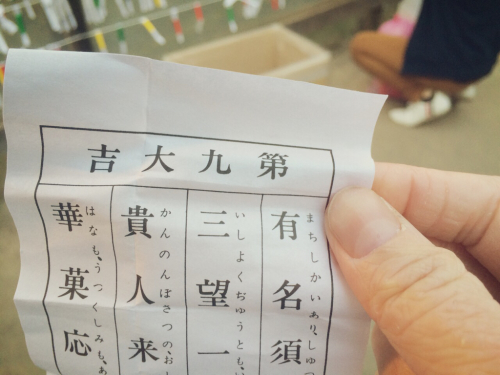 第九大吉
有名須
まちしかいあり、しゅつ
三望一
いしよくぢゅうとも、い
貴人来
かんのんぼさつの、お
華菓応
はなも、うつくしみも、あ